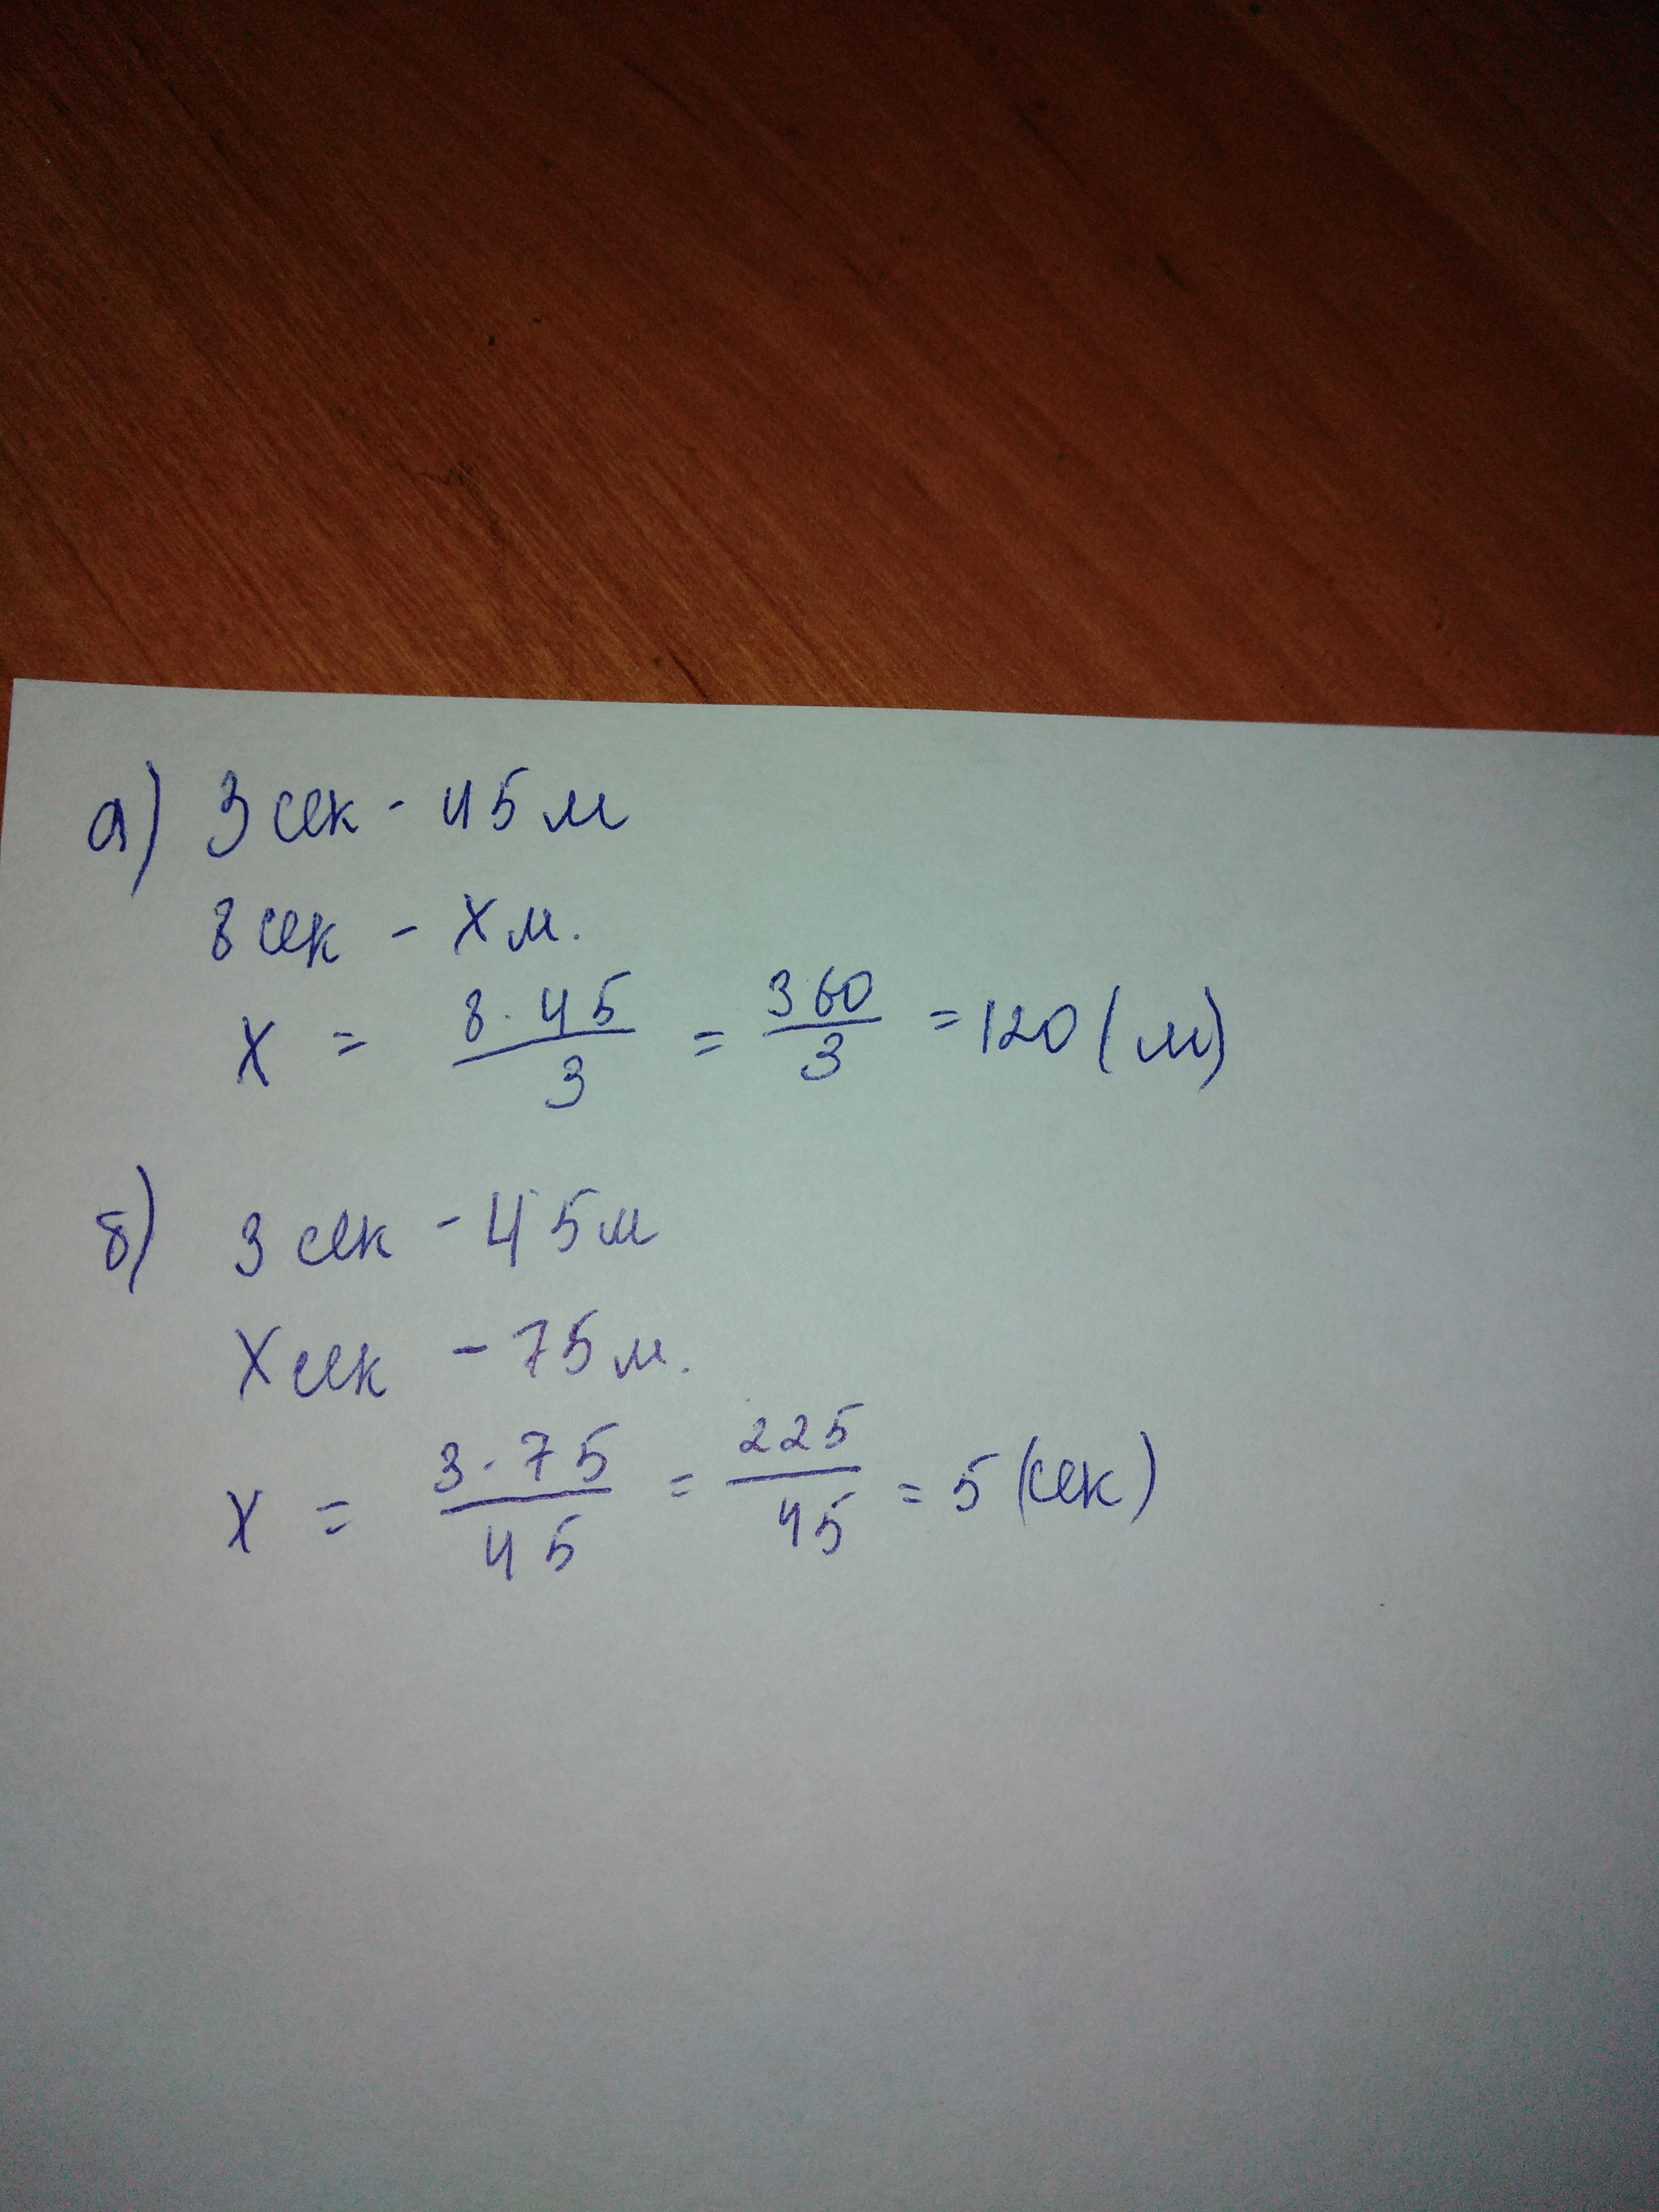 а) 3 сек - 45 м
8 сек - х м.
х = 8·45/3 = 360/3 = 120 (м)
б) 3 сек - 45 м
х сек - 75 м.
х = 3·75/45 = 225/45 = 5 (сек)